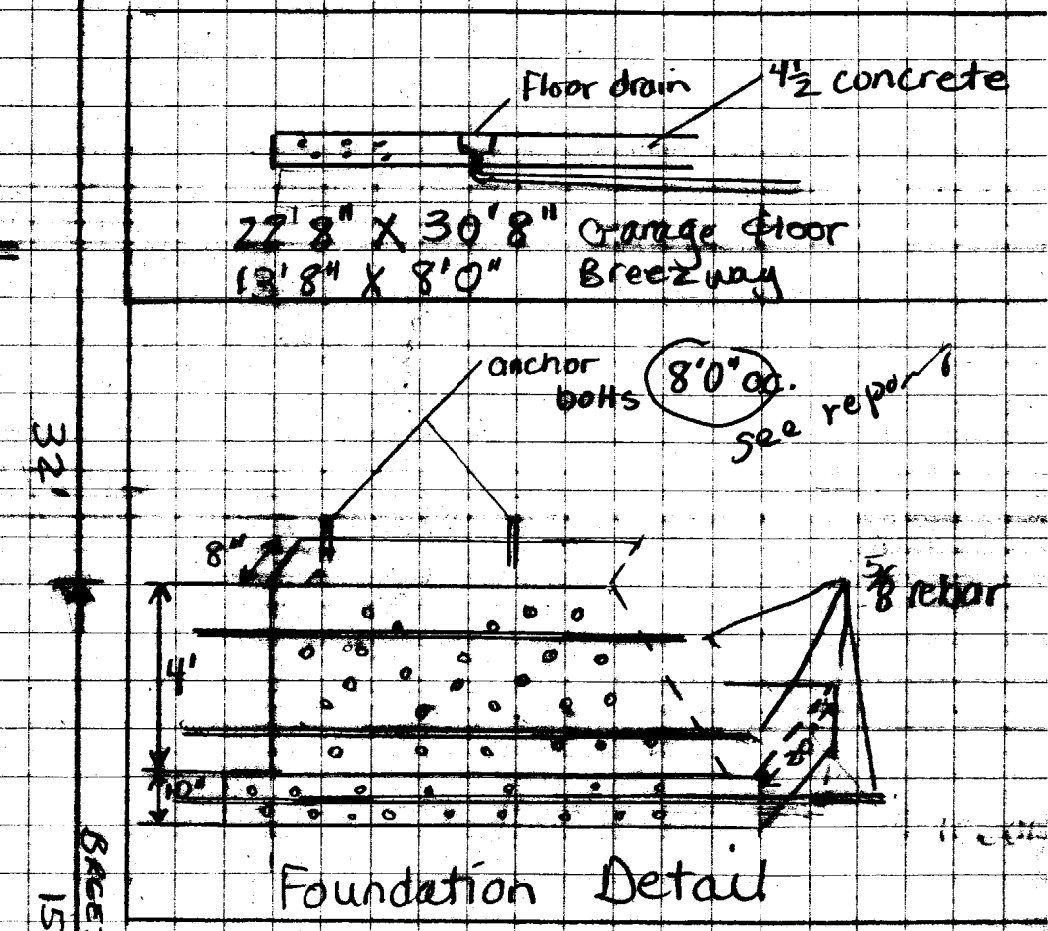 Floor drain
4½ concrete
22'8" X 30'8" Garage floor
13'8" X 8'0" Breezway
anchor bolts 8'0" oc.
see report
32'
8"
5/8 rebar
4'
20"
10"
Foundation Detail
15